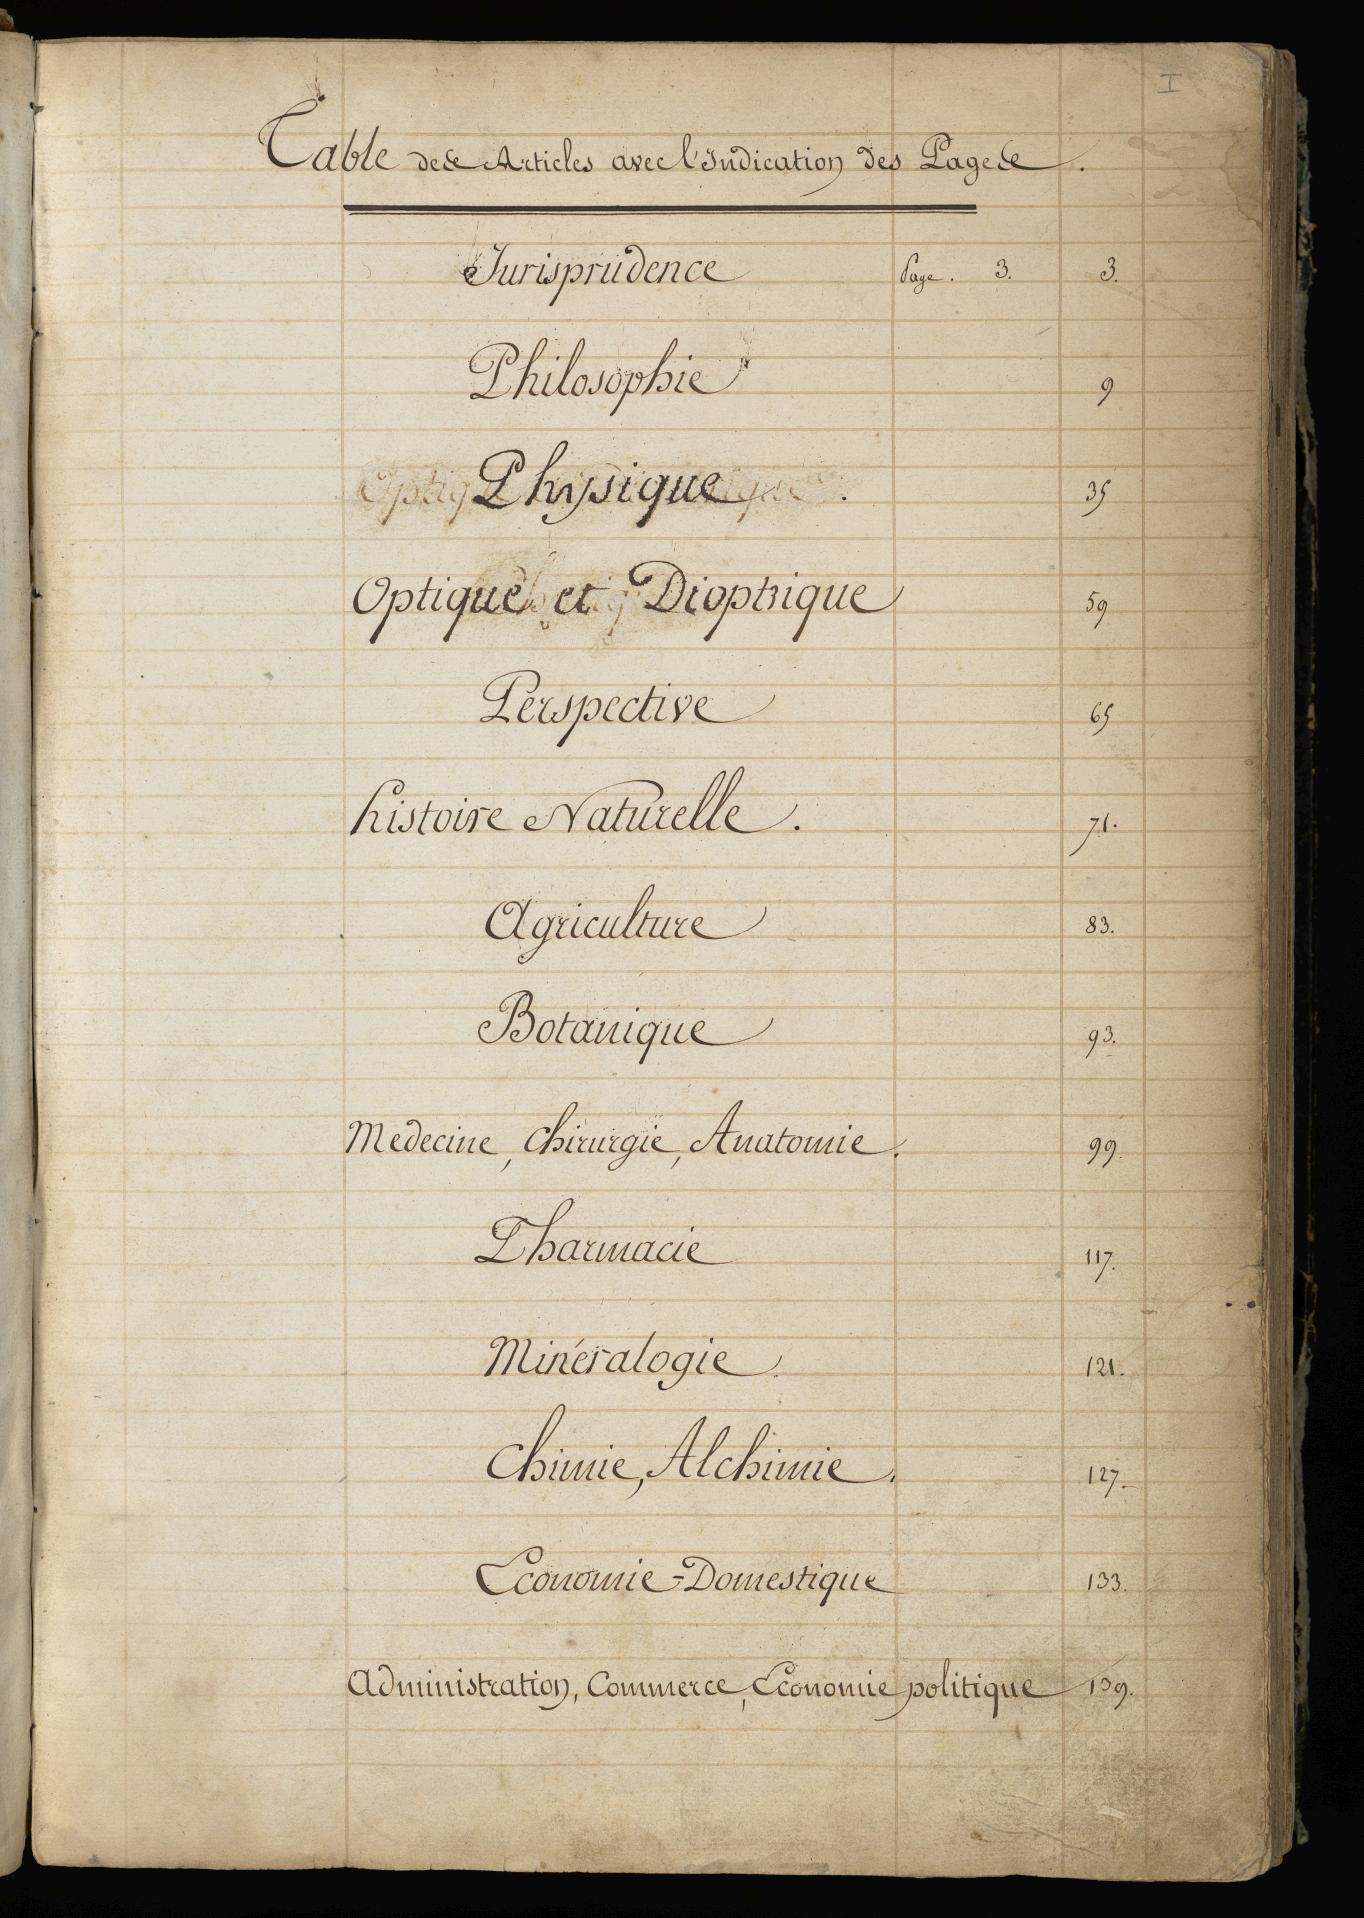 I
Table des Articles avec l'Indication des Pages.
Jurisprudence Page. 3. 3.
Philosophie 9
Physique. 35
Optique et Dioptrique 59
Perspective 65
histoire Naturelle. 71.
Agriculture 83.
Botanique 93.
Medecine, Chirurgie, Anatomie. 99.
Pharmacie 117.
Minéralogie. 121.
Chimie, Alchimie. 127.
Economie-Domestique 133.
Administration, Commerce, Economie politique 139.